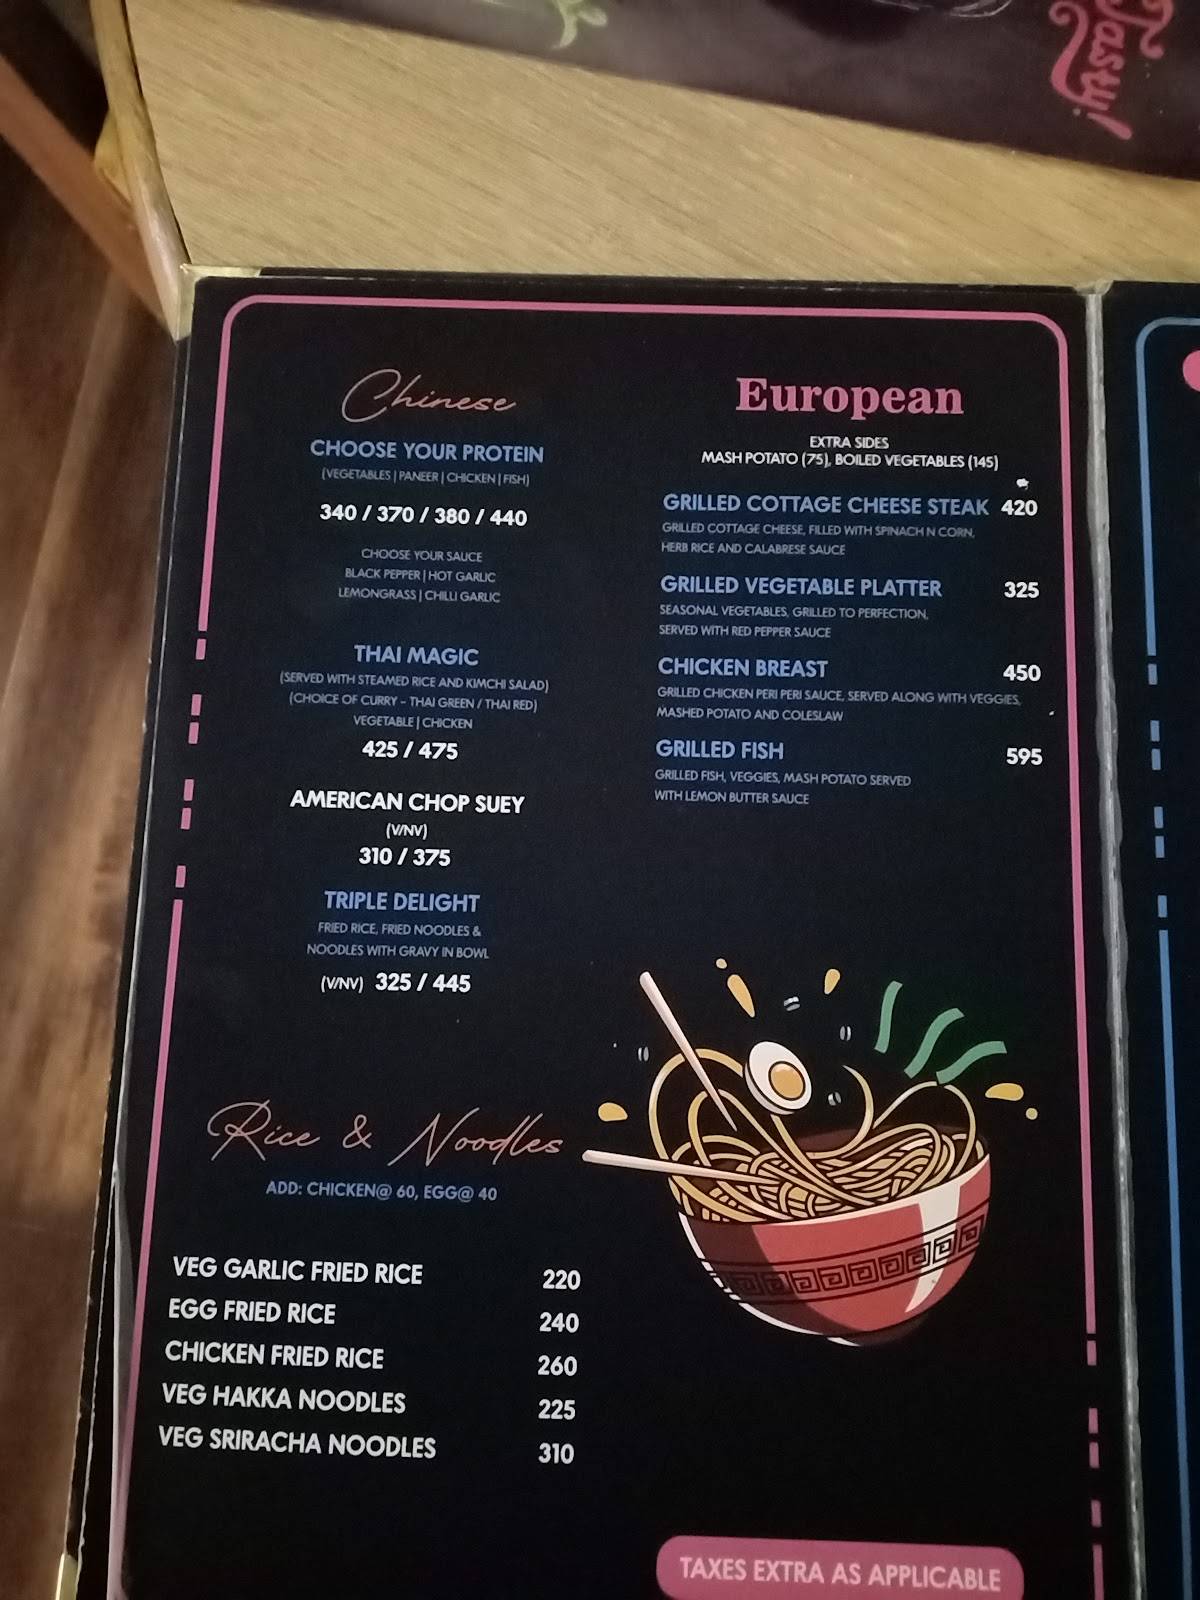 Tasty!
Chinese
CHOOSE YOUR PROTEIN
(VEGETABLES | PANEER | CHICKEN | FISH)
340 / 370 / 380 / 440
CHOOSE YOUR SAUCE
BLACK PEPPER | HOT GARLIC
LEMONGRASS | CHILLI GARLIC
THAI MAGIC
(SERVED WITH STEAMED RICE AND KIMCHI SALAD)
(CHOICE OF CURRY - THAI GREEN / THAI RED)
VEGETABLE | CHICKEN
425 / 475
AMERICAN CHOP SUEY
(V/NV)
310 / 375
TRIPLE DELIGHT
FRIED RICE, FRIED NOODLES &
NOODLES WITH GRAVY IN BOWL
(V/NV) 325 / 445
Rice & Noodles
ADD: CHICKEN@ 60, EGG@ 40
VEG GARLIC FRIED RICE 220
EGG FRIED RICE 240
CHICKEN FRIED RICE 260
VEG HAKKA NOODLES 225
VEG SRIRACHA NOODLES 310
European
EXTRA SIDES
MASH POTATO (75), BOILED VEGETABLES (145)
GRILLED COTTAGE CHEESE STEAK 420
GRILLED COTTAGE CHEESE, FILLED WITH SPINACH N CORN,
HERB RICE AND CALABRESE SAUCE
GRILLED VEGETABLE PLATTER 325
SEASONAL VEGETABLES, GRILLED TO PERFECTION,
SERVED WITH RED PEPPER SAUCE
CHICKEN BREAST 450
GRILLED CHICKEN PERI PERI SAUCE, SERVED ALONG WITH VEGGIES,
MASHED POTATO AND COLESLAW
GRILLED FISH 595
GRILLED FISH, VEGGIES, MASH POTATO SERVED
WITH LEMON BUTTER SAUCE
TAXES EXTRA AS APPLICABLE